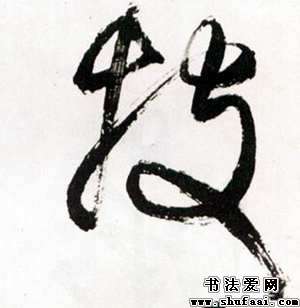 技
书法爱网
www.shufaai.com